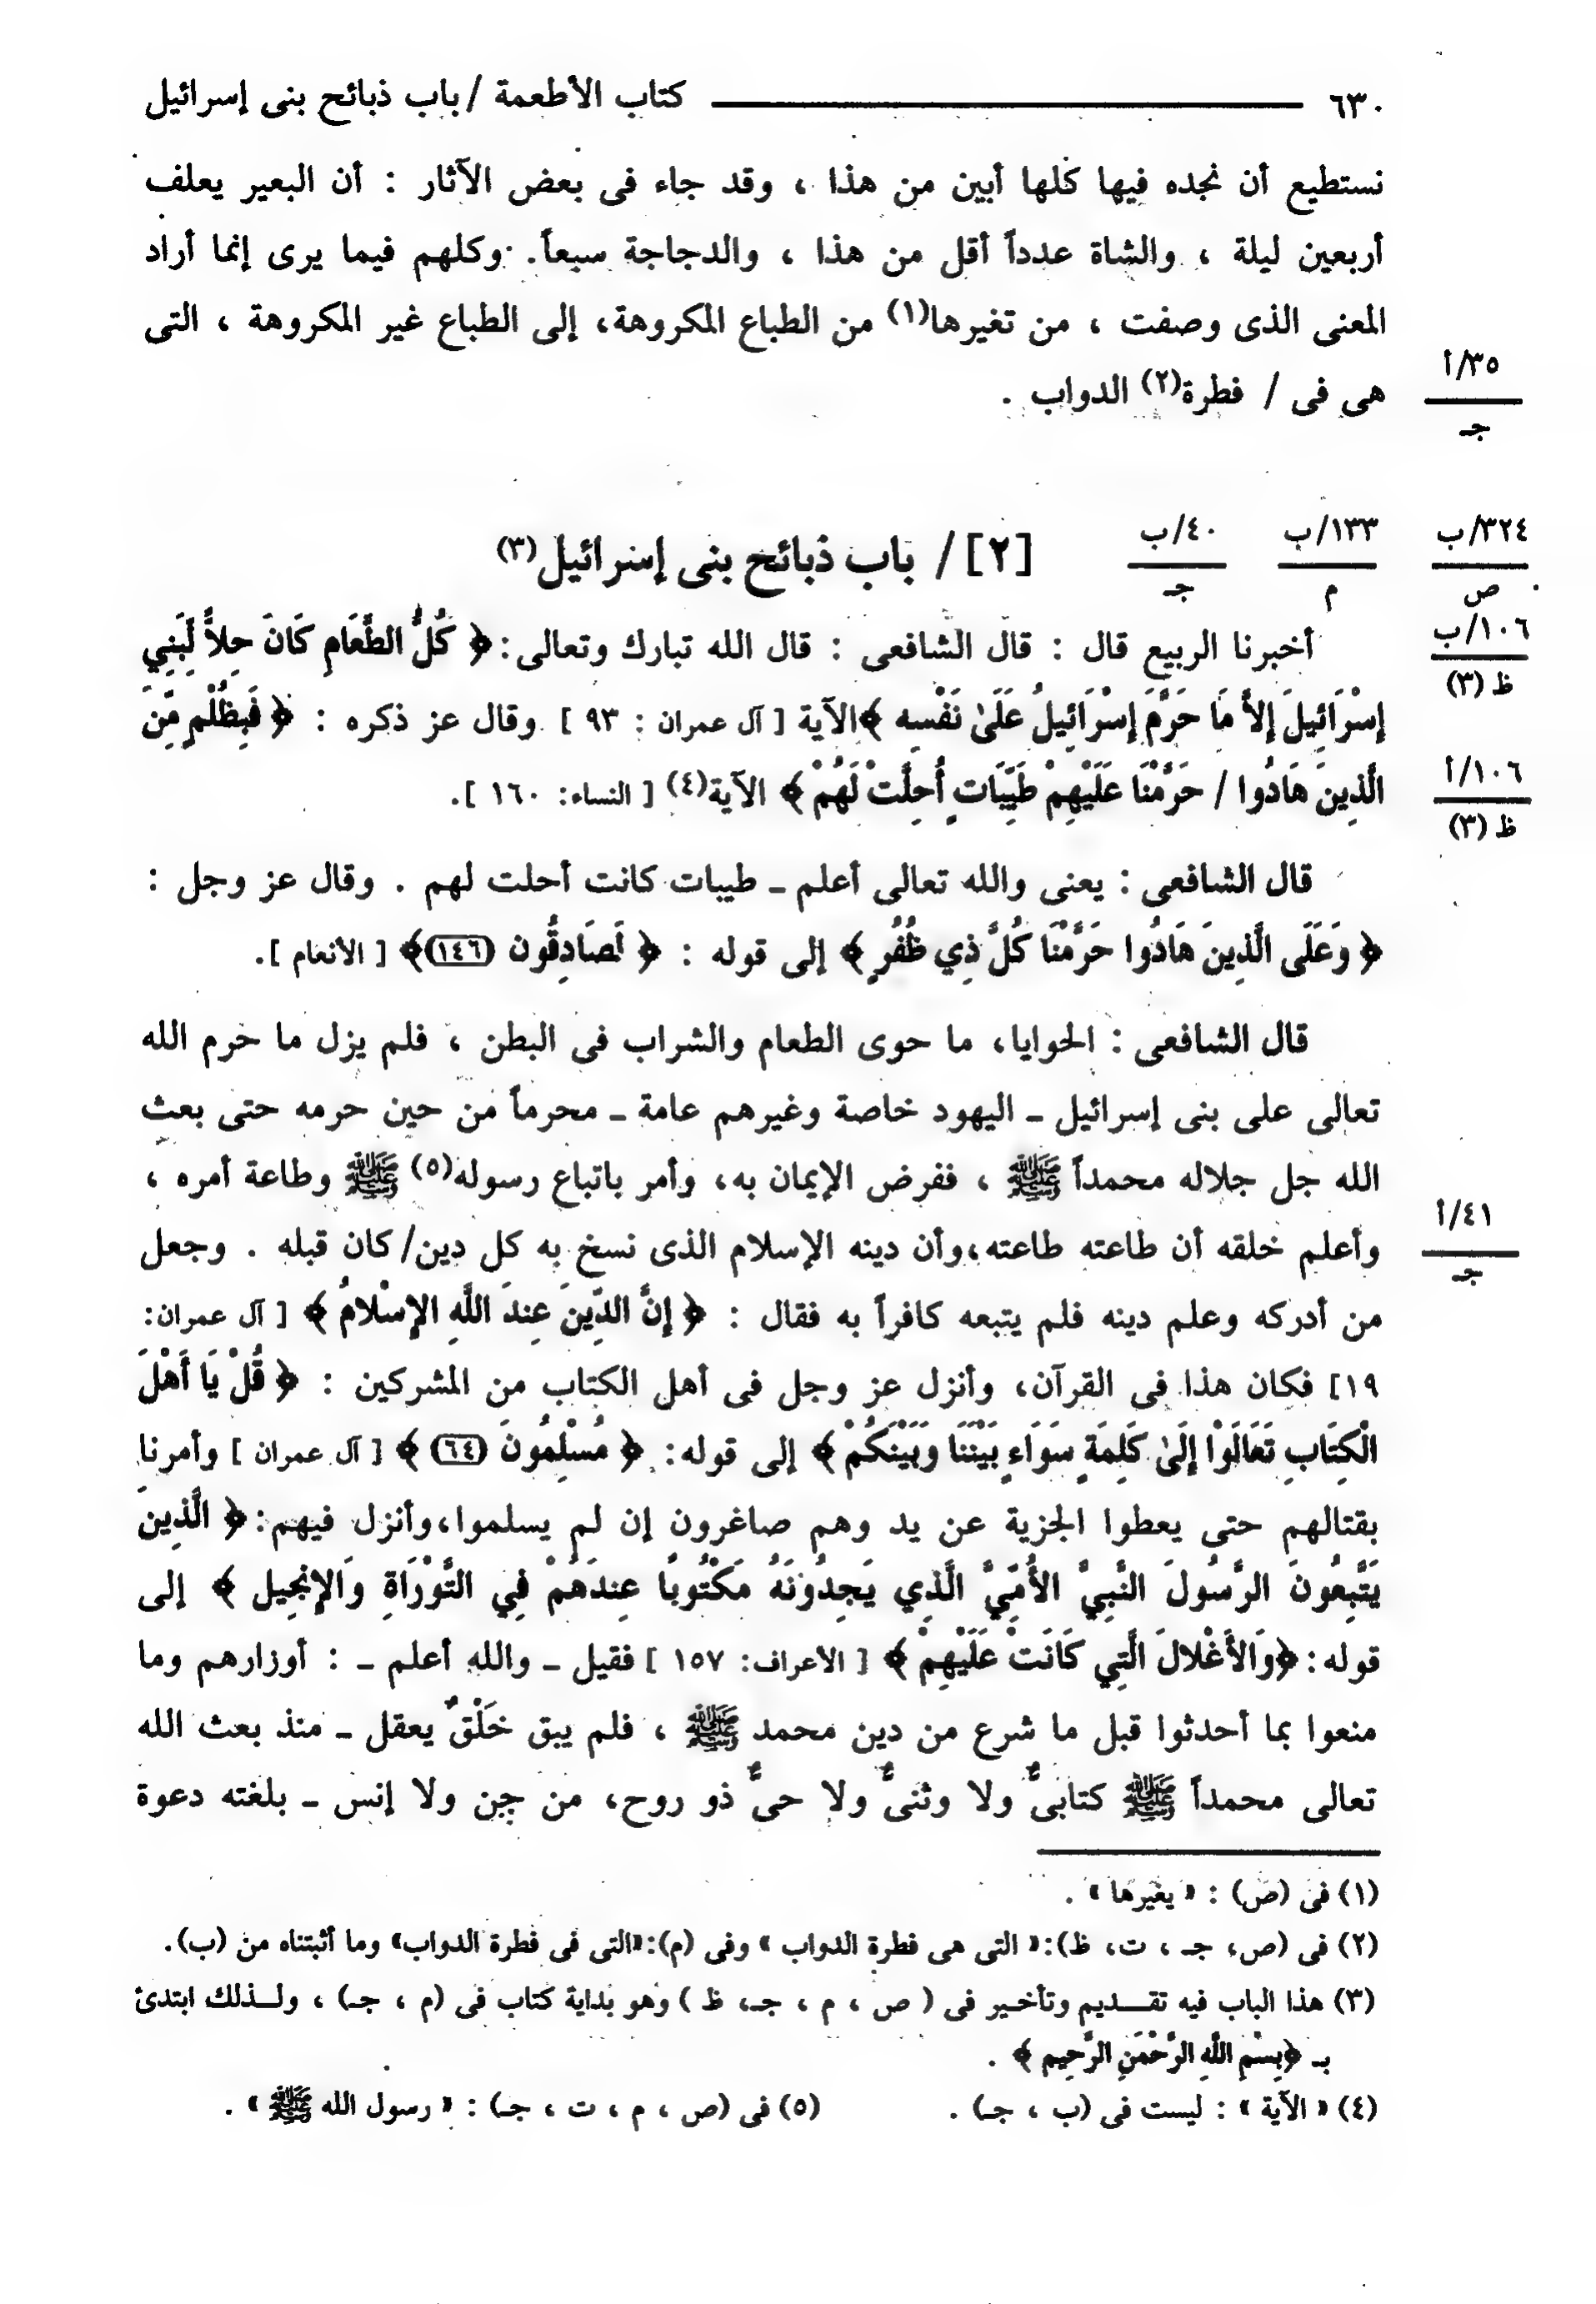 ٦٣٠ كتاب الأطعمة / باب ذبائح بنى إسرائيل
نستطيع أن نجده فيها كلها أبين من هذا ، وقد جاء فى بعض الآثار : أن البعير يعلف
أربعين ليلة ، والشاة عدداً أقل من هذا ، والدجاجة سبعاً. وكلهم فيما يرى إنما أراد
المعنى الذى وصفت ، من تغيرها(١) من الطباع المكروهة، إلى الطباع غير المكروهة ، التى
٣٥/أ
هى فى / فطرة(٢) الدواب .
جـ
٣٢٤/ب ١٣٣/ب ٤٠/ب
[٢] / باب ذبائح بنى إسرائيل(٣)
ص م جـ
١٠٦/ب
ظ (٣)
أخبرنا الربيع قال : قال الشافعى : قال الله تبارك وتعالى: ﴿ كُلُّ الطَّعَامِ كَانَ حِلاًّ لِّبَنِي
إِسْرَائِيلَ إِلاَّ مَا حَرَّمَ إِسْرَائِيلُ عَلَىٰ نَفْسِهِ ﴾ الآية [ آل عمران : ٩٣ ] وقال عز ذكره : ﴿ فَبِظُلْمٍ مِّنَ
١٠٦/أ
الَّذِينَ هَادُوا / حَرَّمْنَا عَلَيْهِمْ طَيِّبَاتٍ أُحِلَّتْ لَهُمْ ﴾ الآية(٤) [ النساء: ١٦٠ ].
ظ (٣)
قال الشافعى : يعنى والله تعالى أعلم ـ طيبات كانت أحلت لهم . وقال عز وجل :
﴿ وَعَلَى الَّذِينَ هَادُوا حَرَّمْنَا كُلَّ ذِي ظُفُرٍ ﴾ إلى قوله : ﴿ لَصَادِقُونَ (١٤٦) ﴾ [ الأنعام ].
قال الشافعى : الحوايا، ما حوى الطعام والشراب فى البطن ، فلم يزل ما حرم الله
تعالى على بنى إسرائيل ـ اليهود خاصة وغيرهم عامة ـ محرماً من حين حرمه حتى بعث
الله جل جلاله محمداً ﷺ ، ففرض الإيمان به، وأمر باتباع رسوله(٥) ﷺ وطاعة أمره ،
٤١/أ
وأعلم خلقه أن طاعته طاعته،وأن دينه الإسلام الذى نسخ به كل دين/ كان قبله . وجعل
جـ
من أدركه وعلم دينه فلم يتبعه كافراً به فقال : ﴿ إِنَّ الدِّينَ عِندَ اللَّهِ الإِسْلامُ ﴾ [ آل عمران:
١٩] فكان هذا فى القرآن، وأنزل عز وجل فى أهل الكتاب من المشركين : ﴿ قُلْ يَا أَهْلَ
الْكِتَابِ تَعَالَوْا إِلَىٰ كَلِمَةٍ سَوَاءٍ بَيْنَنَا وَبَيْنَكُمْ ﴾ إلى قوله: ﴿ مُسْلِمُونَ (٦٤) ﴾ [ آل عمران ] وأمرنا
بقتالهم حتى يعطوا الجزية عن يد وهم صاغرون إن لم يسلموا،وأنزل فيهم: ﴿ الَّذِينَ
يَتَّبِعُونَ الرَّسُولَ النَّبِيَّ الأُمِّيَّ الَّذِي يَجِدُونَهُ مَكْتُوبًا عِندَهُمْ فِي التَّوْرَاةِ وَالإِنجِيلِ ﴾ إلى
قوله : ﴿وَالأَغْلالَ الَّتِي كَانَتْ عَلَيْهِمْ ﴾ [ الأعراف: ١٥٧ ] فقيل ـ والله أعلم ـ : أوزارهم وما
منعوا بما أحدثوا قبل ما شرع من دين محمد ﷺ ، فلم يبق خَلْقٌ يعقل ـ منذ بعث الله
تعالى محمداً ﷺ كتابىٌّ ولا وثنىٌّ ولا حىٌّ ذو روح، من جن ولا إنس ـ بلغته دعوة
(١) فى (ص) : « يغيرها » .
(٢) فى (ص، جـ ، ت، ظ):« التى هى فطرة الدواب » وفى (م):«التى فى فطرة الدواب» وما أثبتناه من (ب).
(٣) هذا الباب فيه تقـــديم وتأخـير فى ( ص ، م ، جـ، ظ ) وهو بداية كتاب فى (م ، جـ) ، ولـذلك ابتدئ
بـ ﴿بِسْمِ اللَّهِ الرَّحْمَنِ الرَّحِيمِ ﴾ .
(٤) « الآية » : ليست فى (ب ، جـ) . (٥) فى (ص ، م ، ت ، جـ) : « رسول الله ﷺ » .